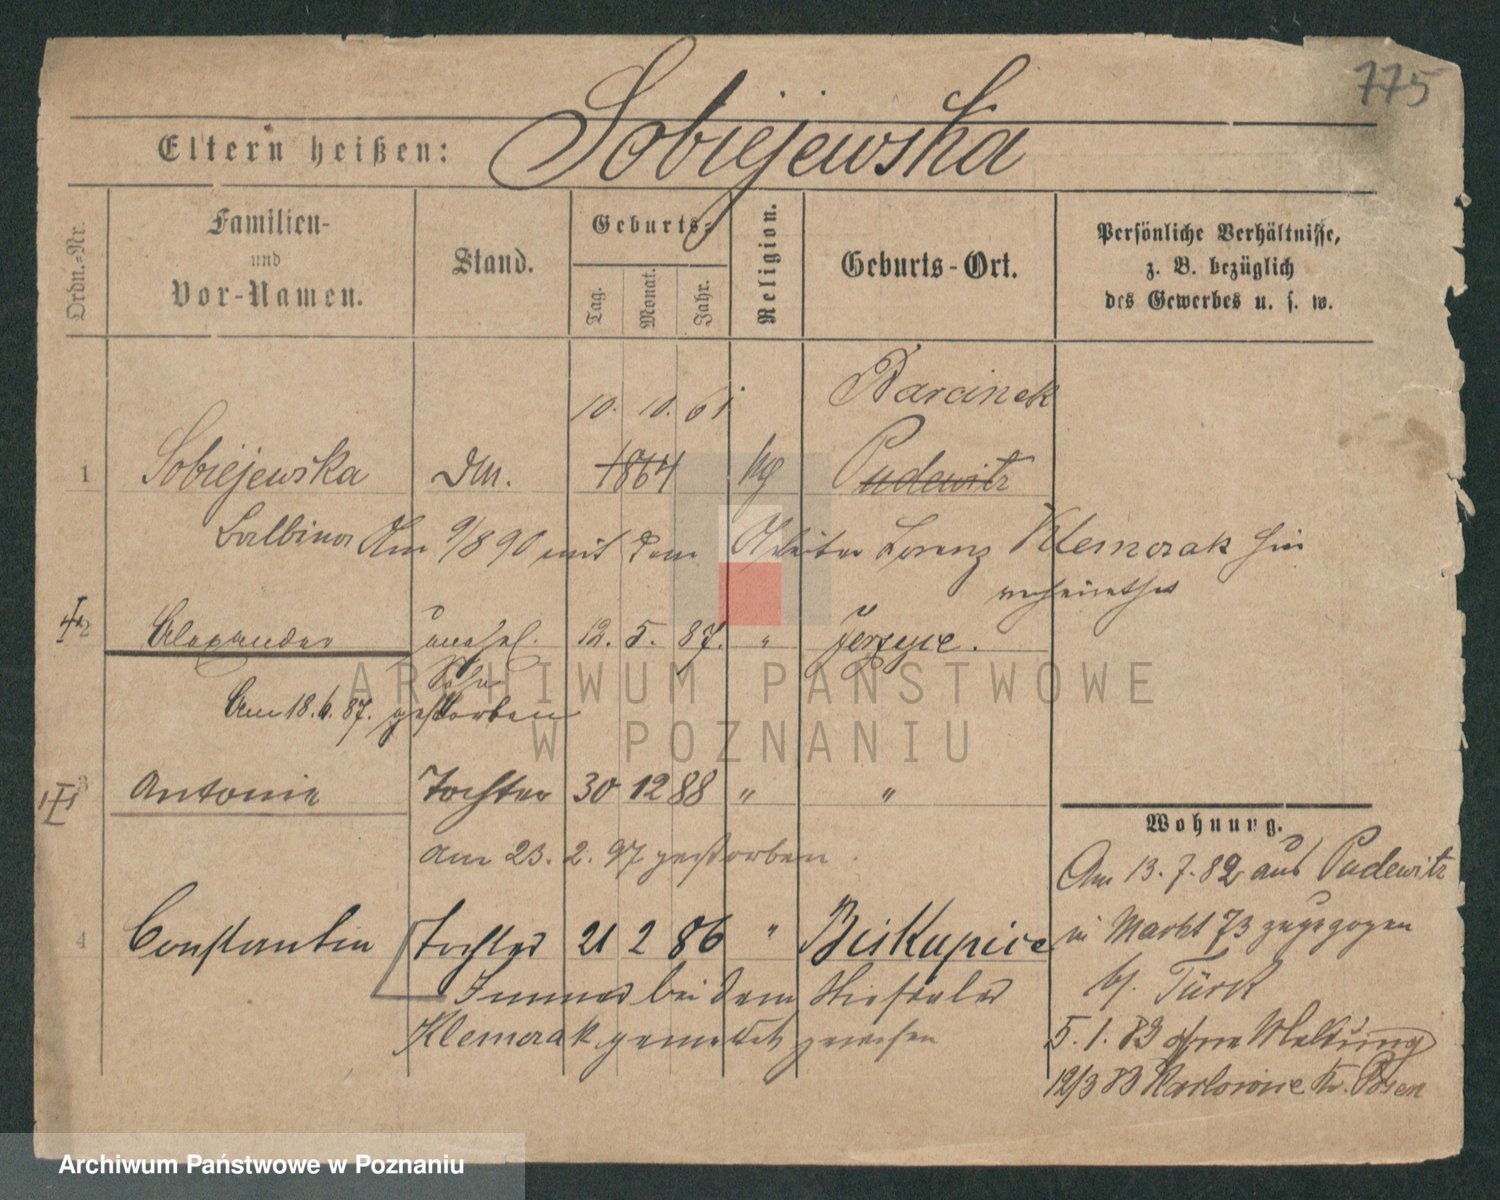 775
Eltern heißen: Sobiejewska
Ordn.-Nr.
Familien-
und
Vor-Namen.
Stand.
Geburts-
Tag.
Monat.
Jahr.
Religion.
Geburts-Ort.
Persönliche Verhältnisse,
z. B. bezüglich
des Gewerbes u. s. w.
10. 10. 61 Barcinek
1 Sobiejewska 1864 Pudewitz
Balbina Am 9/8 90 mit dem Arbeiter Lorenz Klemczak hier
verheirathet
2 Alexander unehel. 12. 5. 87. " Jerzyce.
Sohn
Am 18. 6. 87. gestorben
3 Antonie Tochter 30 12 88 " "
am 23. 2. 97 gestorben
4 Constantin Tochter 21 2 86 " Biskupice
Immer bei dem
Klemczak gemeldet gewesen
Wohnung.
Am 13. 7. 82 aus Pudewitz
in Markt 73 zugezogen
bei Türk
5. 1. 83 ohne Meldung
12/3 83 Karlowice Kr. Posen
ARCHIWUM PAŃSTWOWE
W POZNANIU
Archiwum Państwowe w Poznaniu